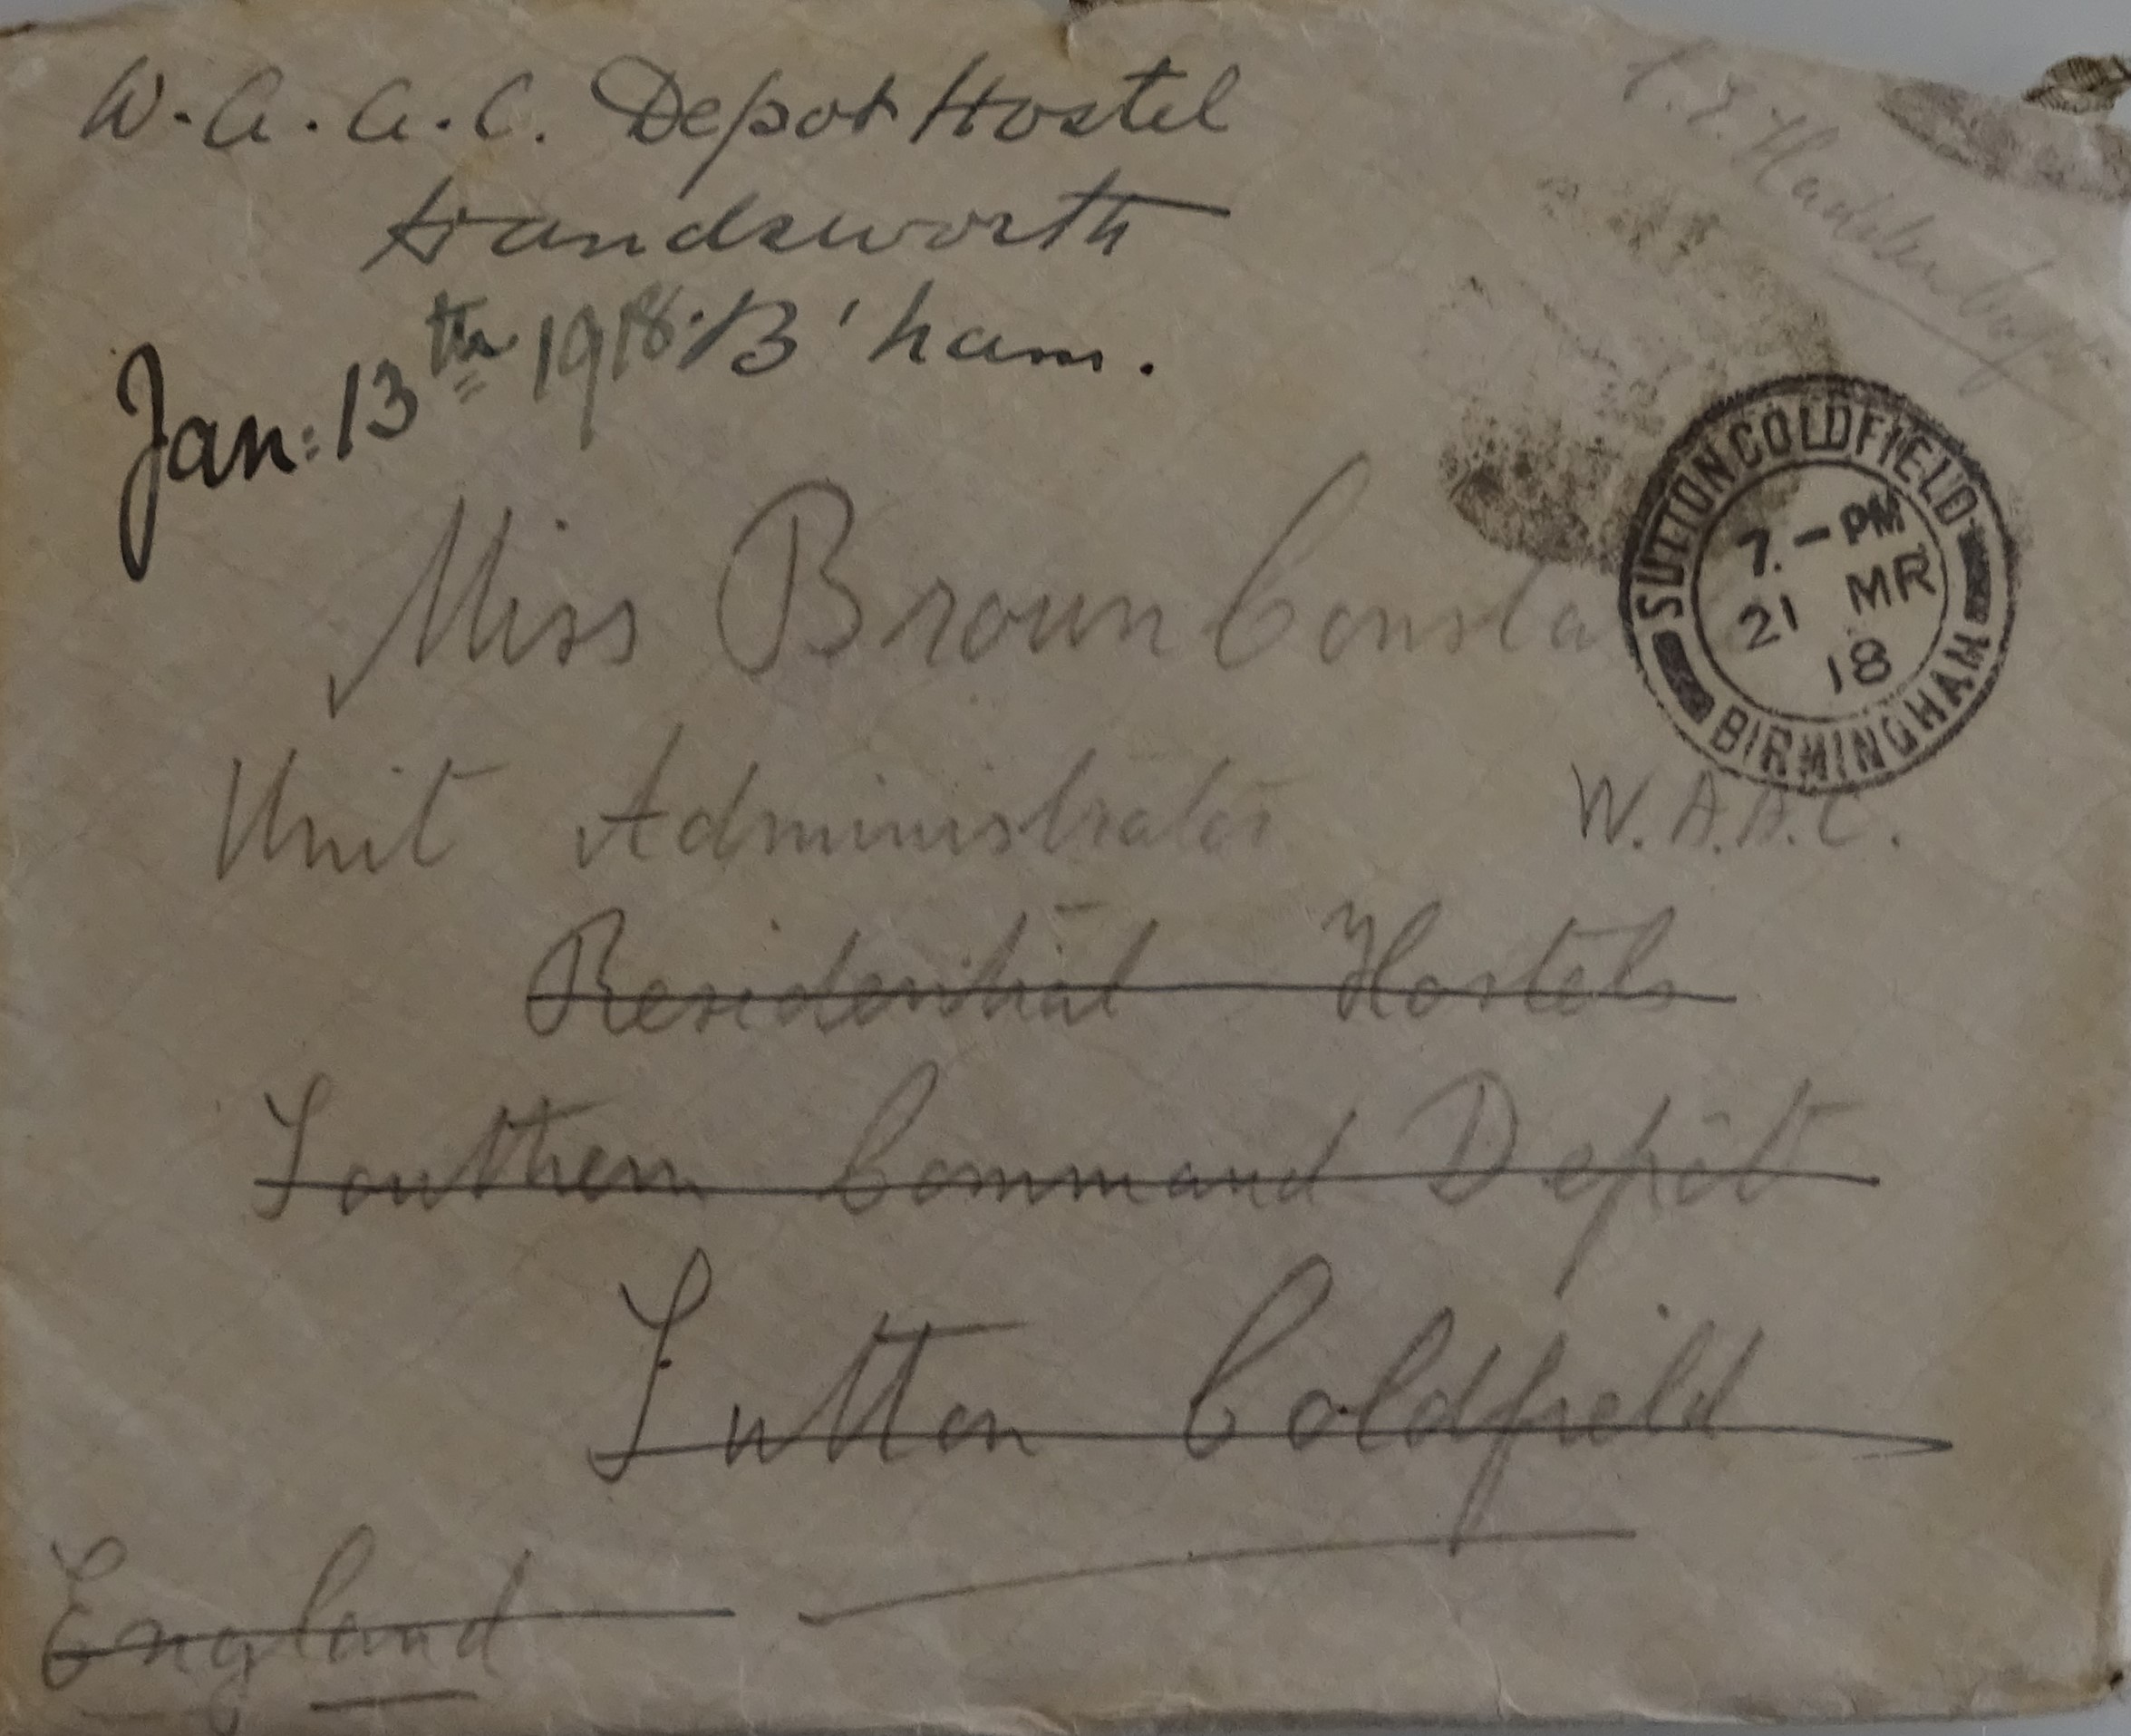 W.A.A.C. Depot Hostel
Handsworth
B'ham.
Jan: 13th 1918.
SUTTON COLDFIELD
7.-PM
21 MR
18
BIRMINGHAM
Miss Broun
Unit Administrator W.A.A.C.
Residential Hostels
Southern Command Depôt
Sutton Coldfield
England